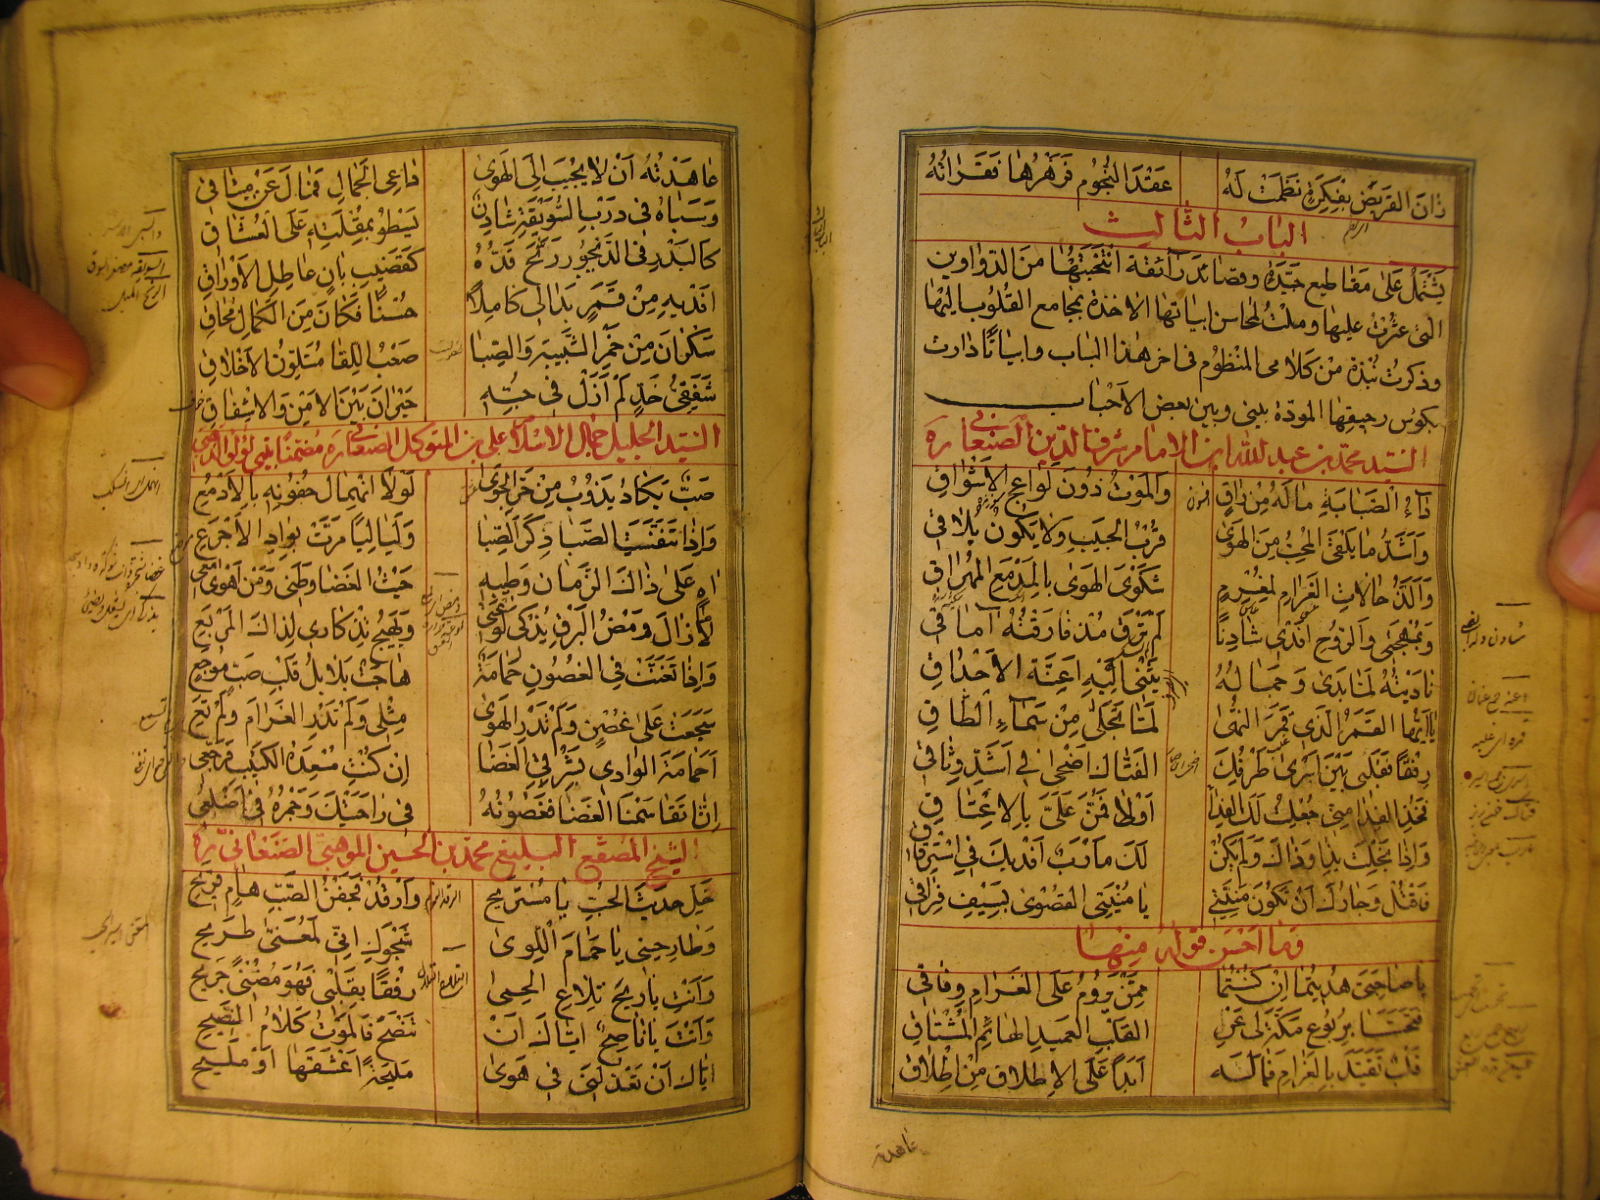 زان القريض بفكرة نظمت له عقد النجوم فزهرها فقراته
الباب الثالث
يشتمل على مقاطيع جيدة وقصائد رائقة انتخبتها من الدواوين
التى عثرت عليها وملت لمحاسن ابياتها الاخذة بمجامع القلوب اليها
وذكرت نبذة من كلامى المنظوم فى اخر هذا الباب وابياتا دارت
بكوس رحيقها المودة بينى وبين بعض الاحباب
السيد محمد بن عبد الله ابن الامام شرف الدين الصنعانى ره
داء الصبابة ماله من راق والموت دون لواعج الاشواق
واشد ما يلقى المحب من الهوى قرب الحبيب ولا يكون تلاقى
والذ حالات الغرام لمغرم شكوى الهوى بالمدمع المهراق
وبمهجتى والروح افدى شادنا لم ترق منذ فارقته آماقى
ناديته لما بدى وجماله يثنى اليه اعنة الاحداق
يا ايها القمر الذى قمر النهى لما تجلى من سماء الطاق
رفقا فقلبى بين اسرى طرفك الفتاك اضحى فى اشد وثاقى
فخذ الفدا منى جعلت لك الفدا اولا فمن على بالاعتاق
واذا بخلت بذا وذاك ولم يكن لك مارب افديك فى استرقاق
فاقتل وحاذر ان تكون منيتى يا منيتى القصوى بسيف فراق
وما احسن قوله منها
يا صاحبى هديتما ان كنتما ممن يروم على الغرام وفاقى
فتحسسا بربوع مكة لى عن القلب العميد الهائم المشتاق
قلب تقيد بالغرام فماله ابدا على الاطلاق من اطلاق
عاهدته
عاهدته ان لا يجيب الى الهوى داعى الجمال فمال عن ميثاقى
وسباه فى درب السويقة شادن يسطو بمقلته على العشاق
كالبدر فى الديجور رنح قده كقضيب بان عاطل الاوراق
افديه من قمر بدا لى كاملا حسنا فكان من الكمال محاق
سكران من خمر الشبيبة والصبا صعب اللقا متلون الاخلاق
شفقى خد لم ازل فى حبه حيران بين الامن والاشفاق
السيد الجليل جمال الاسلام على بن المتوكل الصنعانى ره مضمنا بيتى لؤلؤ الذهبى
صب يكاد يذوب من حر الجوى لولا انهمال جفونه بالادمع
واذا تنفست الصبا ذكر الصبا ولياليا مرت بوادى الاجرع
اه على ذاك الزمان وطيبه حيث الغضا وطنى ومن اهوى معى
لا زال ومض البرق يذكى لوعتى ويهيج تذكارى لذاك المربع
واذا تغنت فى الغصون حمامة هاجت بلابل قلب صب موجع
سجعت على غصن ولم تدر الهوى مثلى ولم تدر الغرام ولم تع
احمامة الوادى بشرقى الغضا ان كنت مسعدة الكئيب فرجعى
انا تقاسمنا الغضا فغصونه فى راحتيك وجمره فى اضلعى
الشيخ المصقع البليغ محمد بن الحسين الموهبى الصنعانى ره
خل حديث الحب يا مستريح وارقد فجفن الصب هام قريح
وطارحينى يا حمام اللوى شجوك انى لمعنى طريح
وانت يا ريح تلاع الحمى رفقا بقلبى فهو مضنى جريح
وانت يا ناصح اياك ان تنصح فالموت كلام النصيح
اياك ان تعذلنى فى هوى مليحة اعشقها او مليح